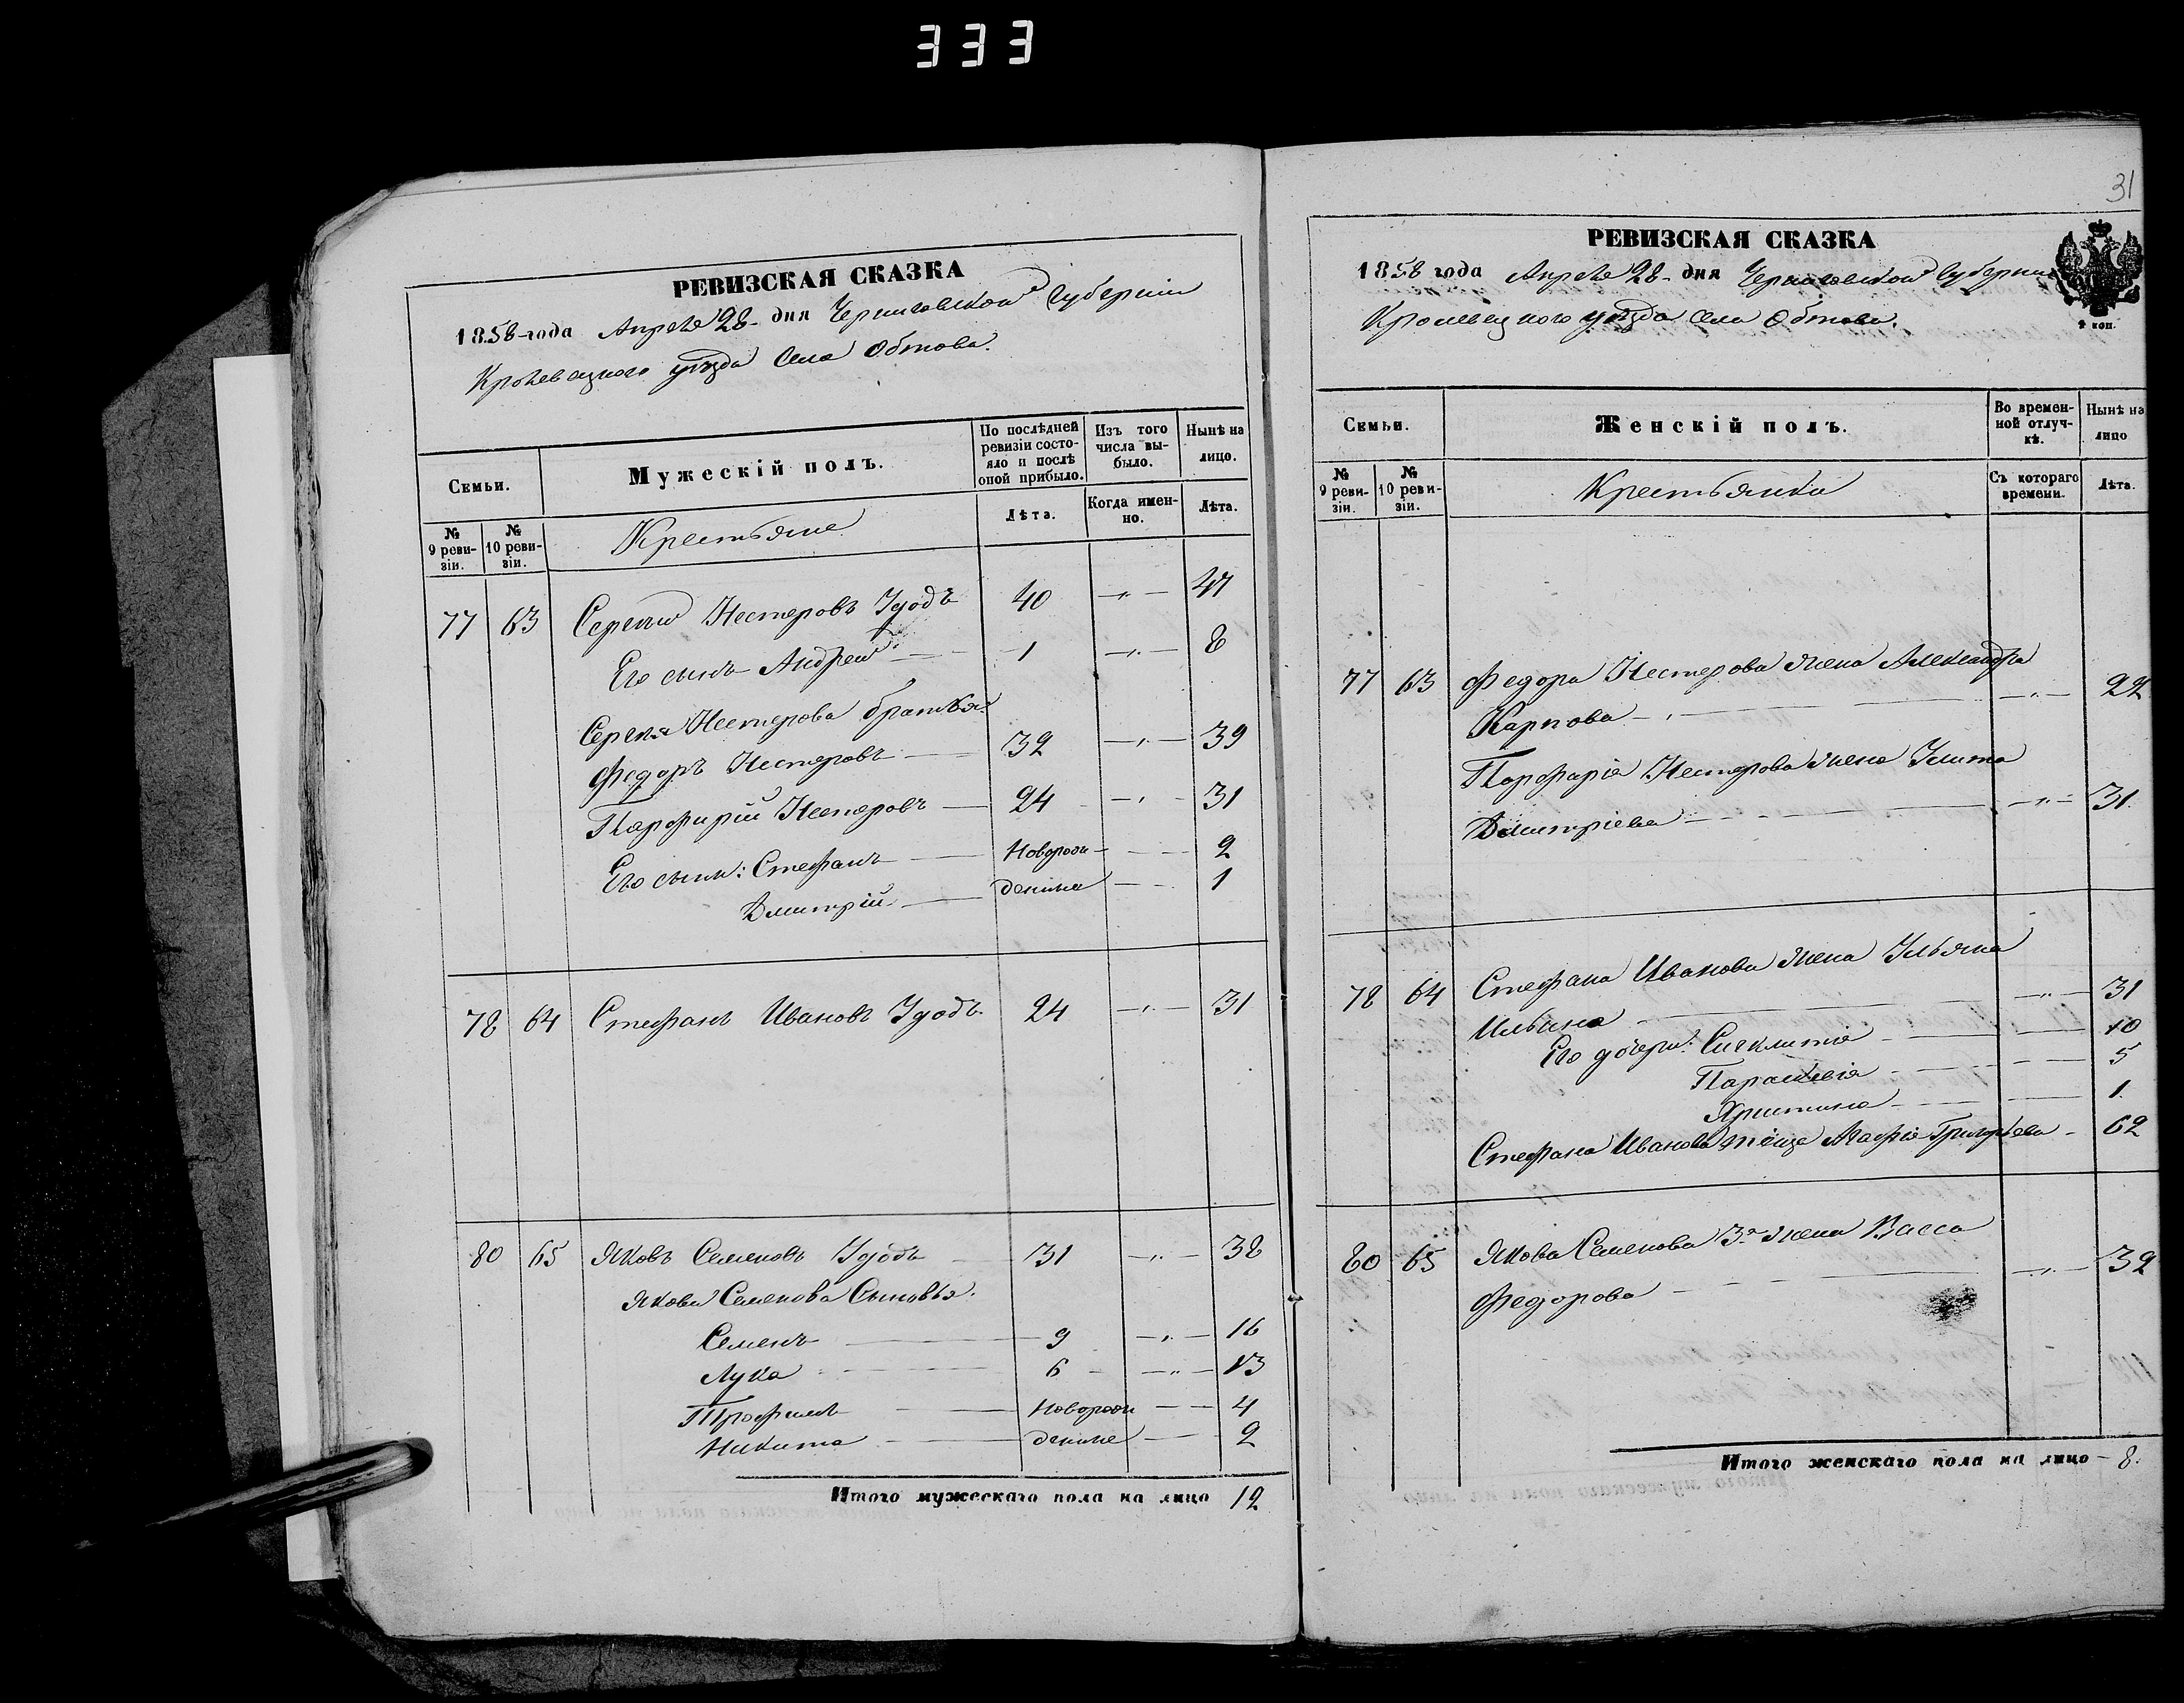 333
РЕВИЗСКАЯ СКАЗКА
1858 года Апреля 28 дня Черниговской Губернии
Кролевецкого уѣзда Села Обтова.
Семьи.
Мужескій полъ.
По послѣдней ревизіи состояло и послѣ оной прибыло.
Изъ того числа выбыло.
Нынѣ на лицо.
№ 9 ревизіи.
№ 10 ревизіи.
Крестьяне
Лѣта.
Когда именно.
Лѣта.
77 63 Сергѣй Нестеровъ Удодъ 40 — „ — 47
Его сынъ Андрей — 1 — „ — 8
Сергѣя Нестерова братья:
Федоръ Нестеровъ — 32 — „ — 39
Парфирій Нестеровъ — 24 — „ — 31
Его сыны: Стефанъ — Новорож- — 2
Дмитрій — денные — 1
78 64 Стефанъ Ивановъ Удодъ 24 — „ — 31
80 65 Яковъ Семеновъ Удодъ 31 — „ — 38
Якова Семенова Сыновья.
Семенъ — 9 — „ — 16
Лука — 6 — „ — 13
Трофимъ — Новорож — 4
Никита — денные — 2
Итого мужескаго пола на лицо 12
31
РЕВИЗСКАЯ СКАЗКА
1858 года Апреля 28 дня Черниговской Губернии
Кролевецкого уѣзда Села Обтова.
2 коп.
Семьи.
Женскій полъ.
Во временной отлучкѣ.
Нынѣ на лицо
№ 9 ревизіи.
№ 10 ревизіи.
Крестьянки
Съ котораго времени.
Лѣта.
77 63 Федора Нестерова жена Александра
Карпова — „ — 22
Парфирія Нестерова жена Улита
Дмитріева — „ — 31.
78 64 Стефана Иванова жена Ульяна
Ильина — „ — 31
Его дочери: Синклитія — 10
Параскевія — 5
Христина — 1.
Стефана Иванова тёща Агафія Григорьева — 62
80 65 Якова Семенова 3я жена Васса
Федорова — „ — 32
Итого женскаго пола на лицо — 8.